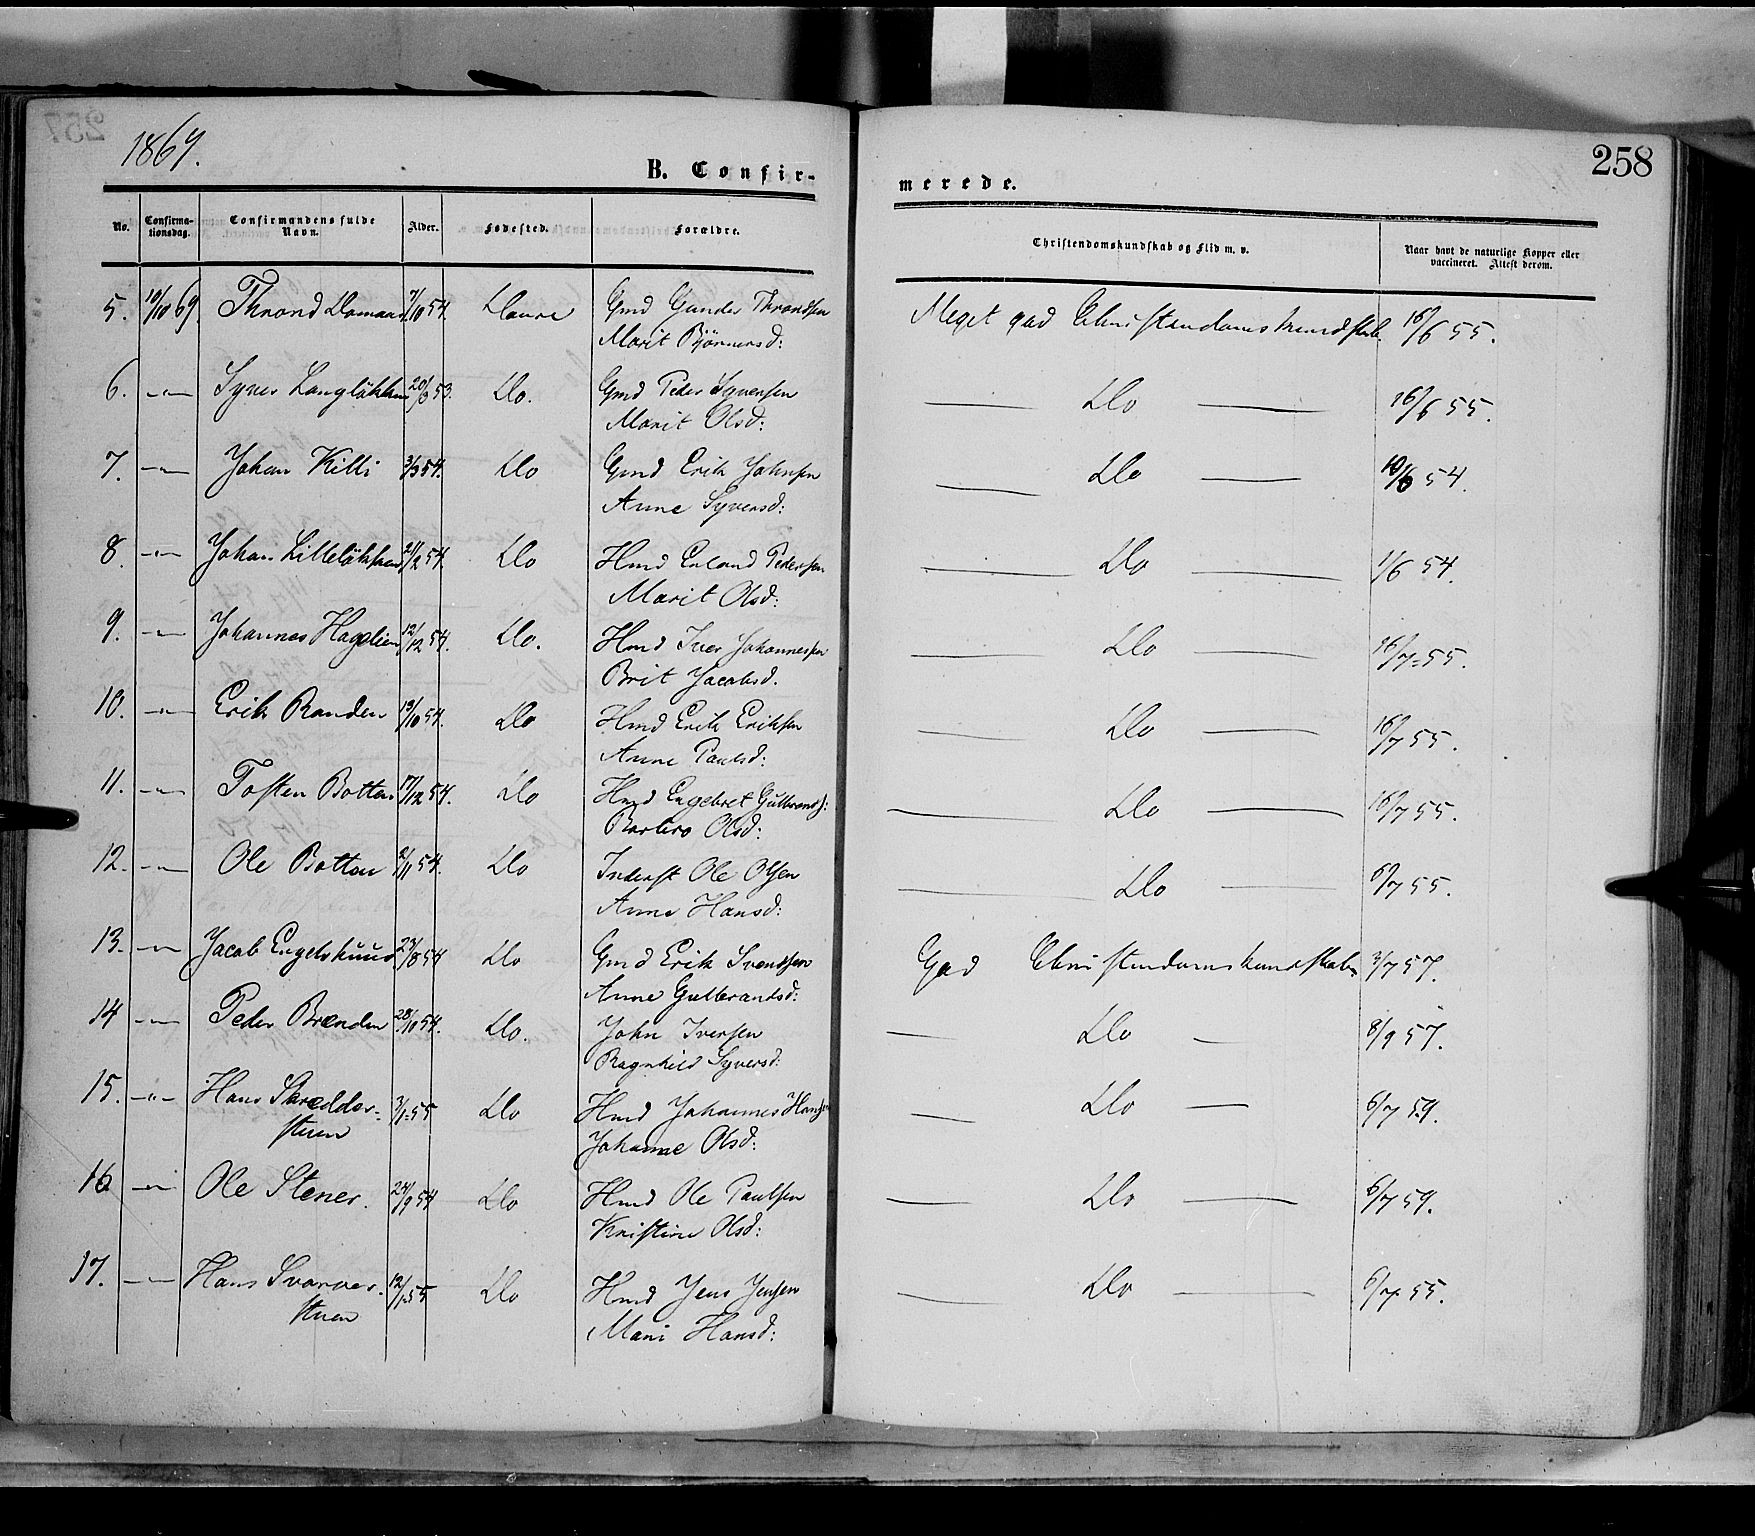 1869.
B. Confir-
merede.
258
No.
Confirma-
tionsdag.
Confirmandens fulde
Navn.
Alder.
Fødested.
Forældre.
Christendomskundskab og Flid m. v.
Naar havt de naturlige Kopper eller
vaccineret. Attest derom.
5. 10/10 69. Thrond 7/10 54. Dovre Gmd Gunder Throndsen Meget god Christendomskundskab. 16/6 55.
Marit Björnersd:
6. -"- Syver Langlökken 20/9 53. Do. Gmd Peder Syversen — Do — 16/6 55.
Marit Olsd:
7. -"- Johan Killi 3/3 54. Do Gmd Erik Johnsen — Do — 10/6 54.
Anne Syversd:
8. -"- Johan Lillelökken 21/2 54. Do Hmd Erland Pedersen — Do — 1/6 54.
Marit Olsd:
9. -"- Johannes Hagelien 12/12 54. Do. Hmd Iver Johannessen — Do — 16/7-55.
Brit Jacobsd.
10. -"- Erik Randen 13/10 54. Do Hmd Erik Eriksen — Do — 16/7 55.
Anne Paulsd:
11. -"- Tosten Botten 17/12 54. Do Hmd Engebret Gulbrands: — Do — 16/7 55.
Barbro Olsd:
12. -"- Ole Botten 2/11 54. Do Inderst Ole Olsen — Do — 6/7 55.
Anne Hansd:
13. -"- Jacob Engelshuus 23/8 54 Do Gmd Erik Svendsen God Christendomskundskab 3/7 57.
Anne Gulbrandsd:
14 -"- Peder Brenden 28/10 54. Do. John Iversen — Do — 8/9 57.
Ragnhild Syversd:
15. -"- Hans Skredder- 3/1-55 Do Hmd Johannes Hansen — Do — 6/7 59.
stuen Johanne Olsd:
16 -"- Ole Stener. 24/9 54 Do Hmd Ole Paulsen — Do — 6/7 59.
Kristine Olsd:
17. -"- Hans Svarver- 12/1-55 Do Hmd Jens Jensen — Do — 6/7 55.
stuen Mari Hansd: